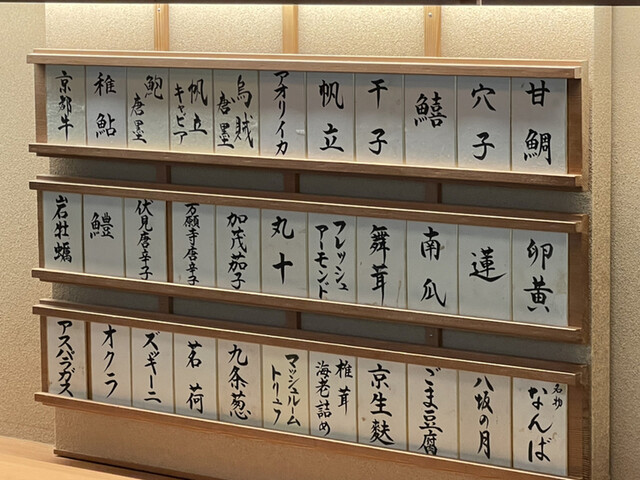 甘鯛
穴子
鱚
干子
帆立
アオリイカ
烏賊
唐墨
帆立
キャビア
鮑
唐墨
稚鮎
京都牛
卵黄
蓮
南瓜
舞茸
フレッシュ
アーモンド
丸十
加茂茄子
万願寺唐辛子
伏見唐辛子
鱧
岩牡蠣
名物
なんば
八坂の月
ごま豆腐
京生麩
椎茸
海老詰め
マッシュルーム
トリュフ
九条葱
茗荷
ズッキーニ
オクラ
アスパラガス